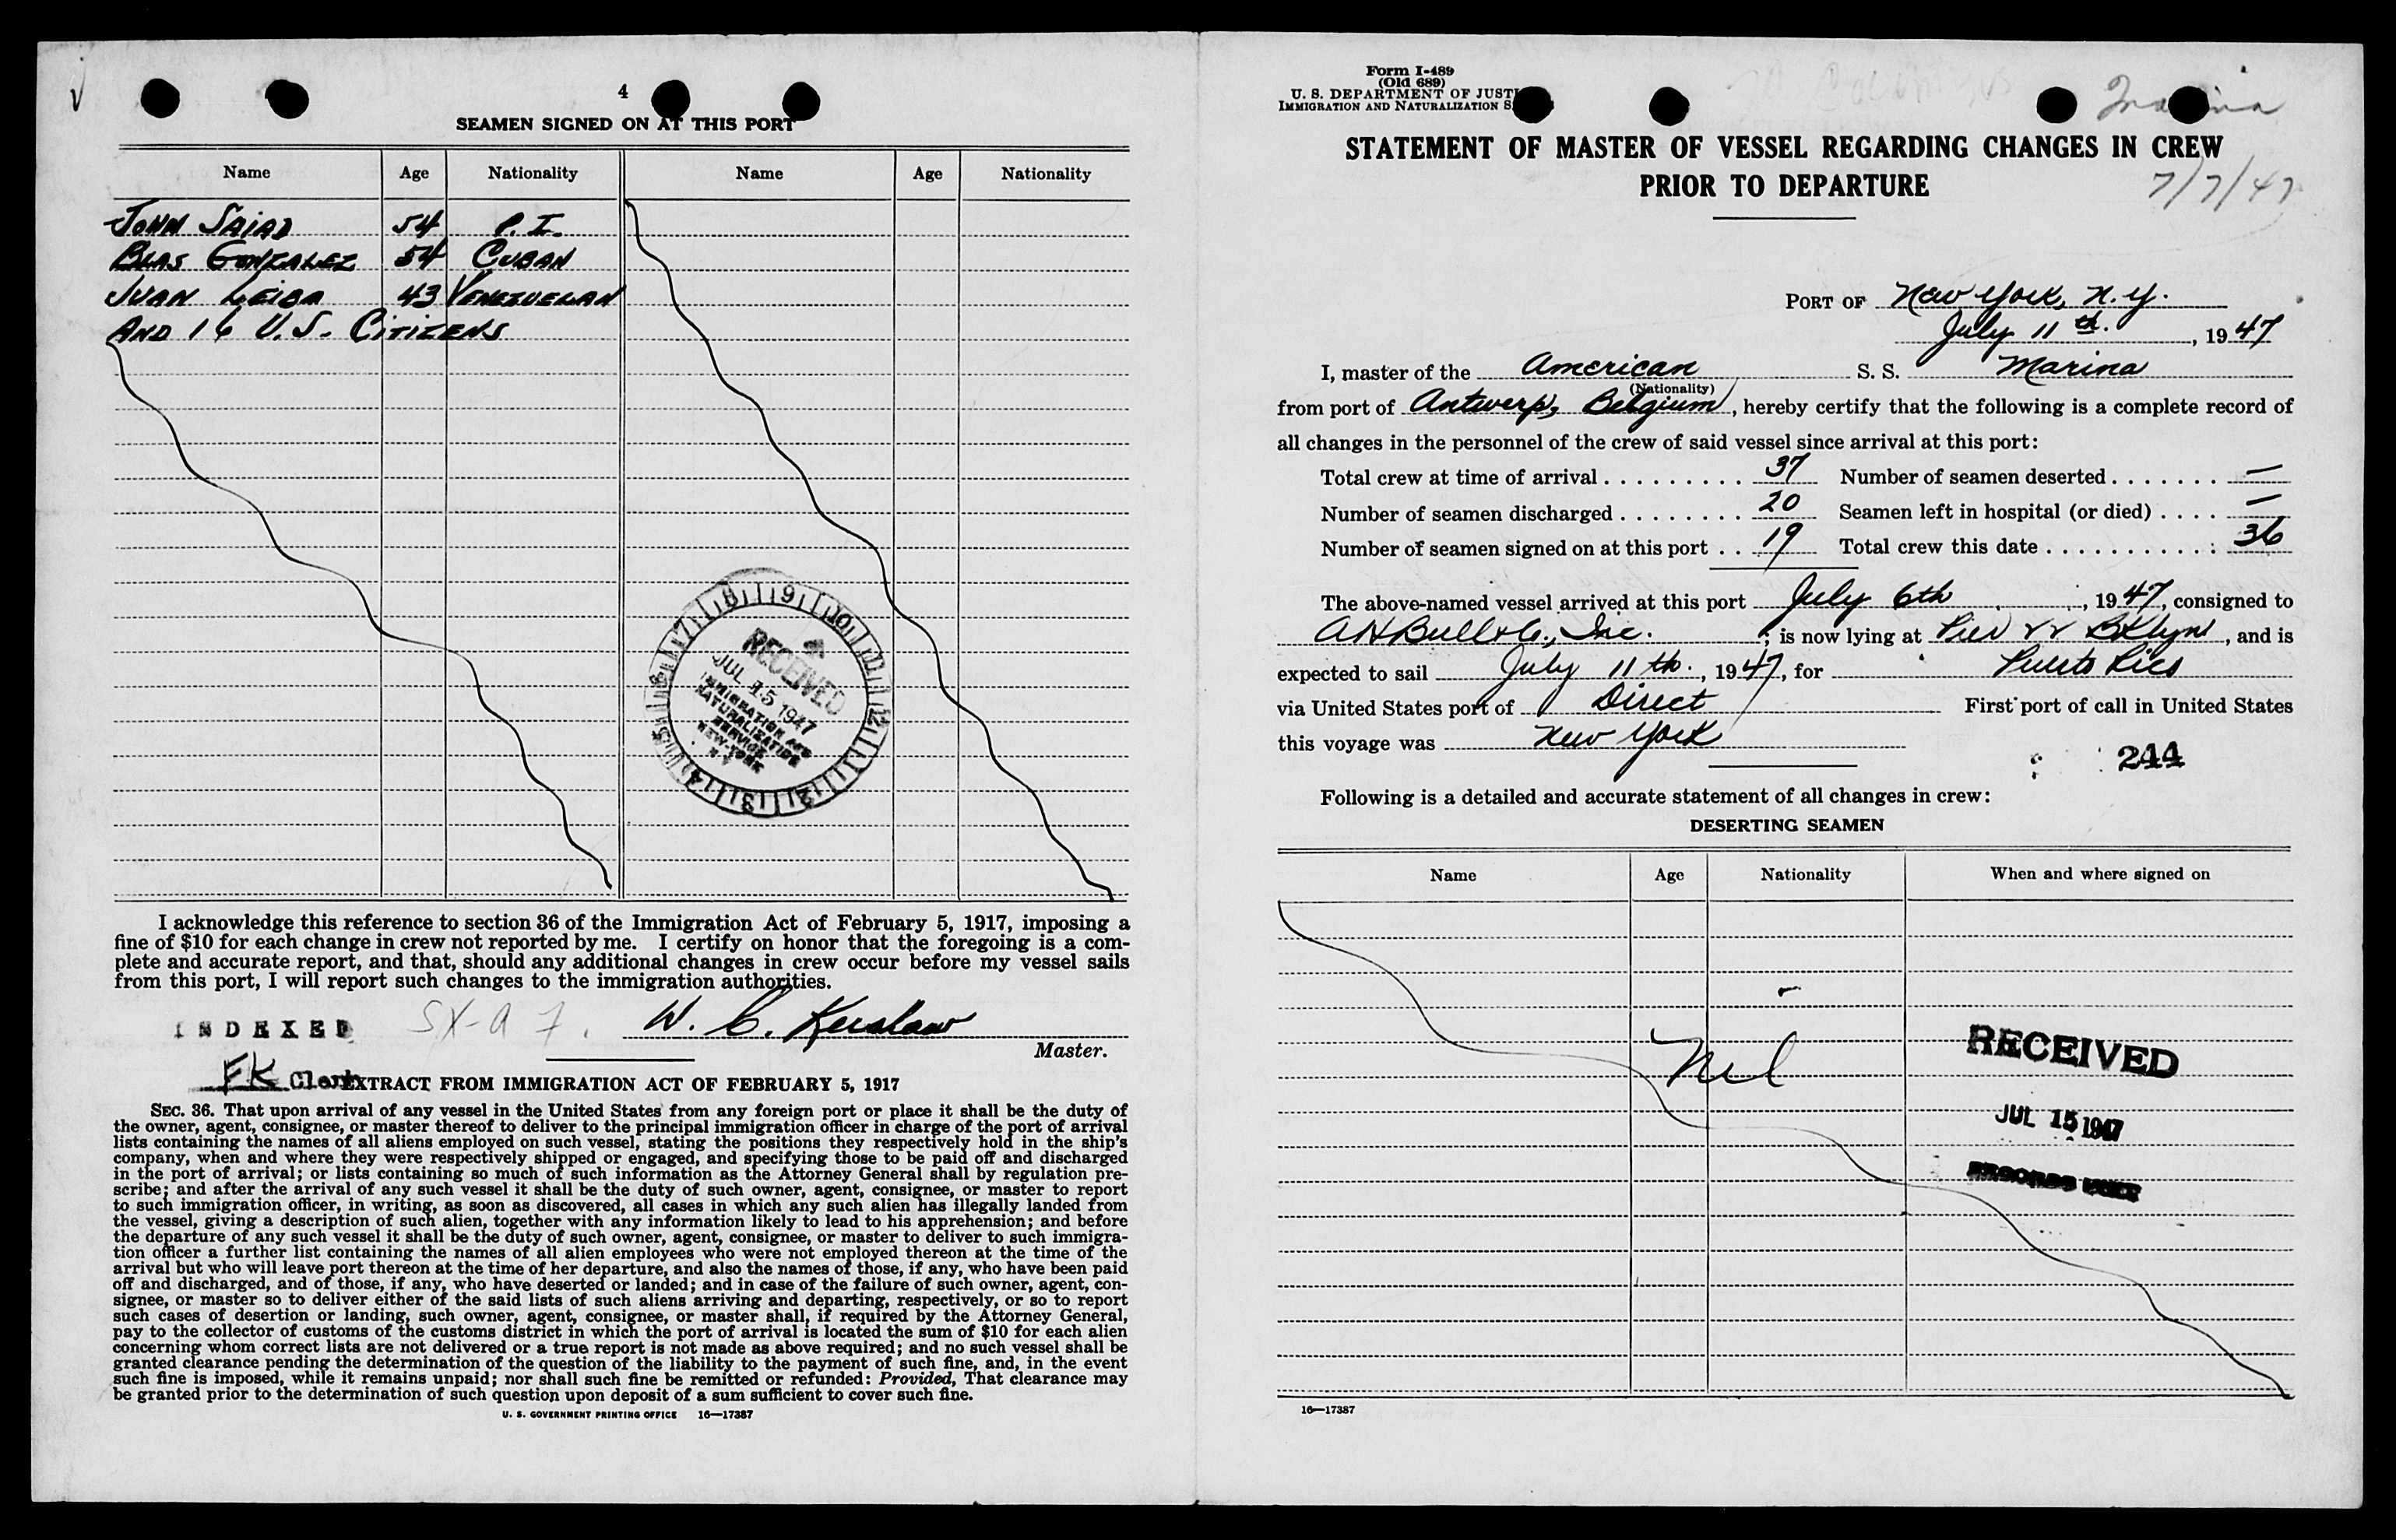 4
SEAMEN SIGNED ON AT THIS PORT
Name Age Nationality Name Age Nationality
JOHN SAIAD 54 P.I.
BLAS GONZALEZ 54 CUBAN
JUAN LEIBA 43 VENEZUELAN
AND 16 U.S. CITIZENS
RECEIVED
JUL 15 1947
IMMIGRATION AND
NATURALIZATION
SERVICE
NEW YORK
N. Y.
I acknowledge this reference to section 36 of the Immigration Act of February 5, 1917, imposing a
fine of $10 for each change in crew not reported by me. I certify on honor that the foregoing is a com-
plete and accurate report, and that, should any additional changes in crew occur before my vessel sails
from this port, I will report such changes to the immigration authorities.
INDEXED W. C. Kershaw
Master.
FK Clerk
EXTRACT FROM IMMIGRATION ACT OF FEBRUARY 5, 1917
SEC. 36. That upon arrival of any vessel in the United States from any foreign port or place it shall be the duty of
the owner, agent, consignee, or master thereof to deliver to the principal immigration officer in charge of the port of arrival
lists containing the names of all aliens employed on such vessel, stating the positions they respectively hold in the ship's
company, when and where they were respectively shipped or engaged, and specifying those to be paid off and discharged
in the port of arrival; or lists containing so much of such information as the Attorney General shall by regulation pre-
scribe; and after the arrival of any such vessel it shall be the duty of such owner, agent, consignee, or master to report
to such immigration officer, in writing, as soon as discovered, all cases in which any such alien has illegally landed from
the vessel, giving a description of such alien, together with any information likely to lead to his apprehension; and before
the departure of any such vessel it shall be the duty of such owner, agent, consignee, or master to deliver to such immigra-
tion officer a further list containing the names of all alien employees who were not employed thereon at the time of the
arrival but who will leave port thereon at the time of her departure, and also the names of those, if any, who have been paid
off and discharged, and of those, if any, who have deserted or landed; and in case of the failure of such owner, agent, con-
signee, or master so to deliver either of the said lists of such aliens arriving and departing, respectively, or so to report
such cases of desertion or landing, such owner, agent, consignee, or master shall, if required by the Attorney General,
pay to the collector of customs of the customs district in which the port of arrival is located the sum of $10 for each alien
concerning whom correct lists are not delivered or a true report is not made as above required; and no such vessel shall be
granted clearance pending the determination of the question of the liability to the payment of such fine, and, in the event
such fine is imposed, while it remains unpaid; nor shall such fine be remitted or refunded: Provided, That clearance may
be granted prior to the determination of such question upon deposit of a sum sufficient to cover such fine.
U. S. GOVERNMENT PRINTING OFFICE 16—17387
Form I-489
(Old 689)
U. S. DEPARTMENT OF JUSTI
IMMIGRATION AND NATURALIZATION S
Marina
STATEMENT OF MASTER OF VESSEL REGARDING CHANGES IN CREW
PRIOR TO DEPARTURE
7/7/47
PORT OF New York, N.Y.
July 11th., 1947
I, master of the American S. S. Marina
(Nationality)
from port of Antwerp, Belgium, hereby certify that the following is a complete record of
all changes in the personnel of the crew of said vessel since arrival at this port:
Total crew at time of arrival 37 Number of seamen deserted —
Number of seamen discharged 20 Seamen left in hospital (or died) —
Number of seamen signed on at this port 19 Total crew this date 36
The above-named vessel arrived at this port July 6th, 1947, consigned to
A H Bull & Co., Inc.; is now lying at Pier 22 Bklyn, and is
expected to sail July 11th., 1947, for Puerto Rico
via United States port of Direct First port of call in United States
this voyage was New York
244
Following is a detailed and accurate statement of all changes in crew:
DESERTING SEAMEN
Name Age Nationality When and where signed on
Nil
RECEIVED
JUL 15 1947
RECORDS UNIT
16—17387